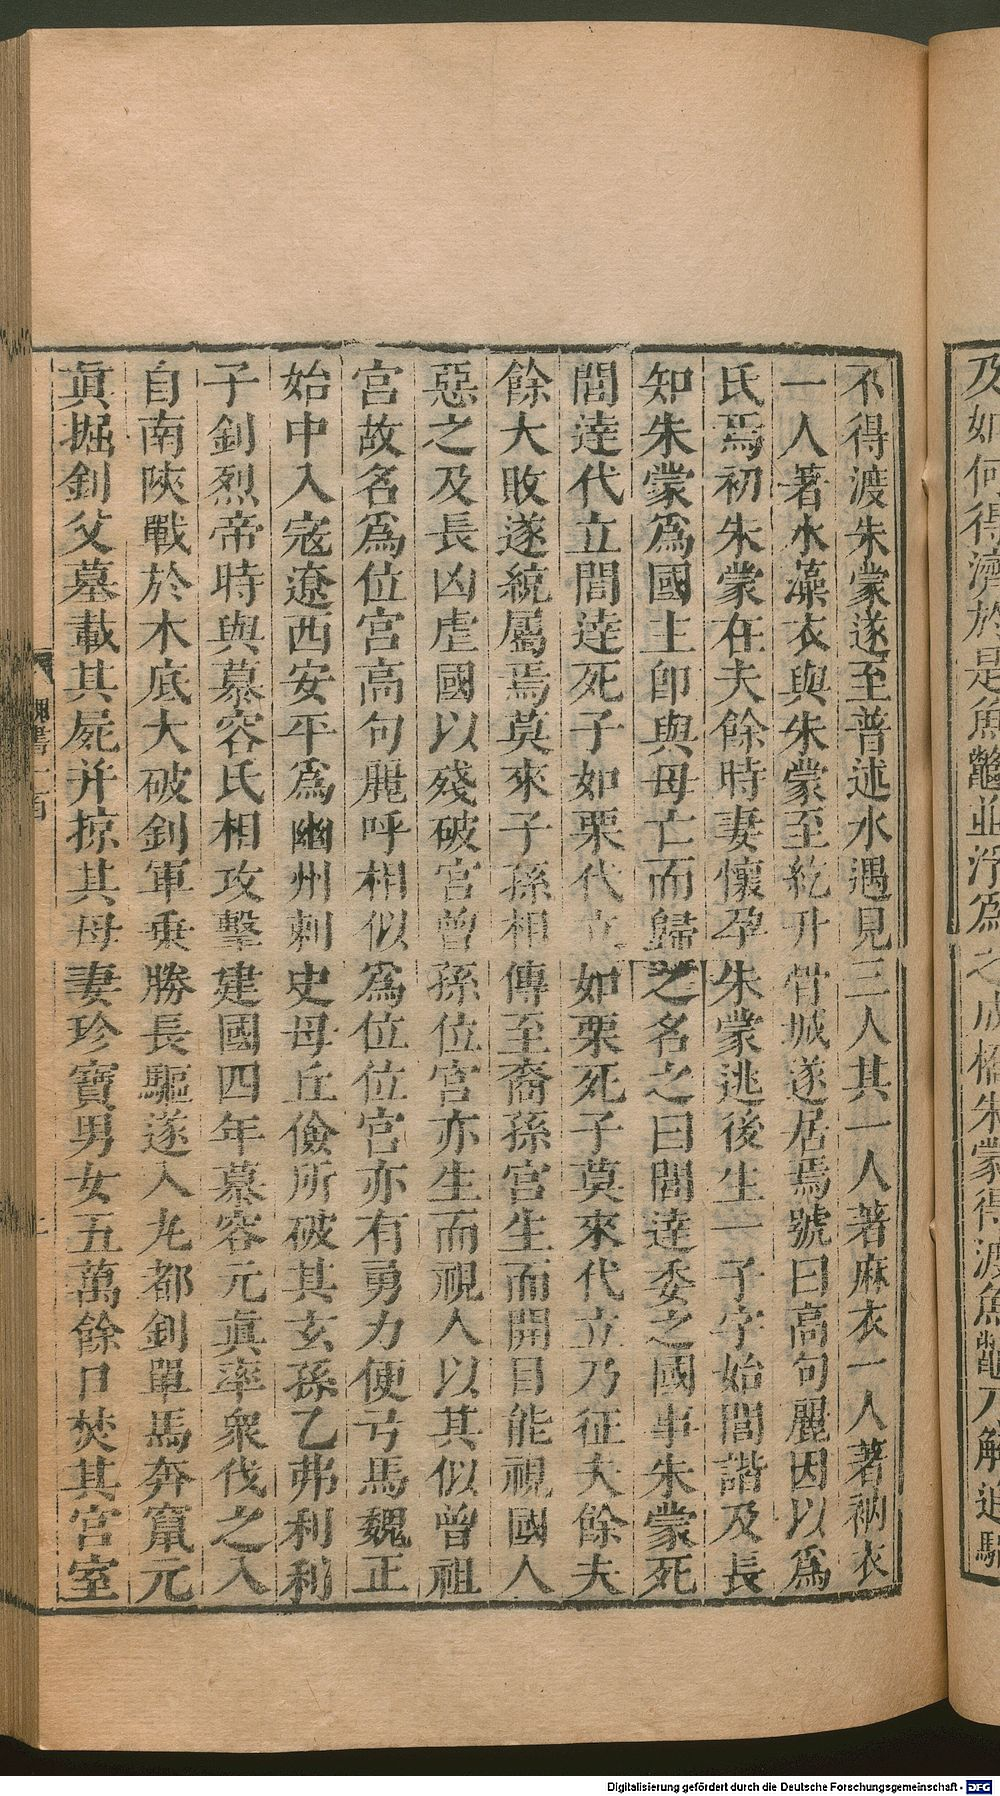 及如何得濟於是魚鼈並浮爲之成橋朱蒙得渡魚鼈乃解追騎
不得渡朱蒙遂至普述水遇見三人其一人著麻衣一人著衲衣
一人著水藻衣與朱蒙至紇升骨城遂居焉號曰高句麗因以爲
氏焉初朱蒙在夫餘時妻懷孕朱蒙逃後生一子字始閭諧及長
知朱蒙爲國主卽與母亡而歸之名之曰閭達委之國事朱蒙死
閭達代立閭達死子如栗代立如栗死子莫來代立乃征夫餘夫
餘大敗遂統屬焉莫來子孫相傳至裔孫宮生而開目能視國人
惡之及長凶虐國以殘破宮曾孫位宮亦生而視人以其似曾祖
宮故名爲位宮高句麗呼相似爲位位宮亦有勇力便弓馬魏正
始中入寇遼西安平爲幽州刺史母丘儉所破其玄孫乙弗利利
子釗烈帝時與慕容氏相攻擊建國四年慕容元眞率衆伐之入
自南陜戰於木底大破釗軍乗勝長驅遂入丸都釗單馬奔竄元
眞掘釗父墓載其屍并掠其母妻珍寶男女五萬餘口焚其宮室